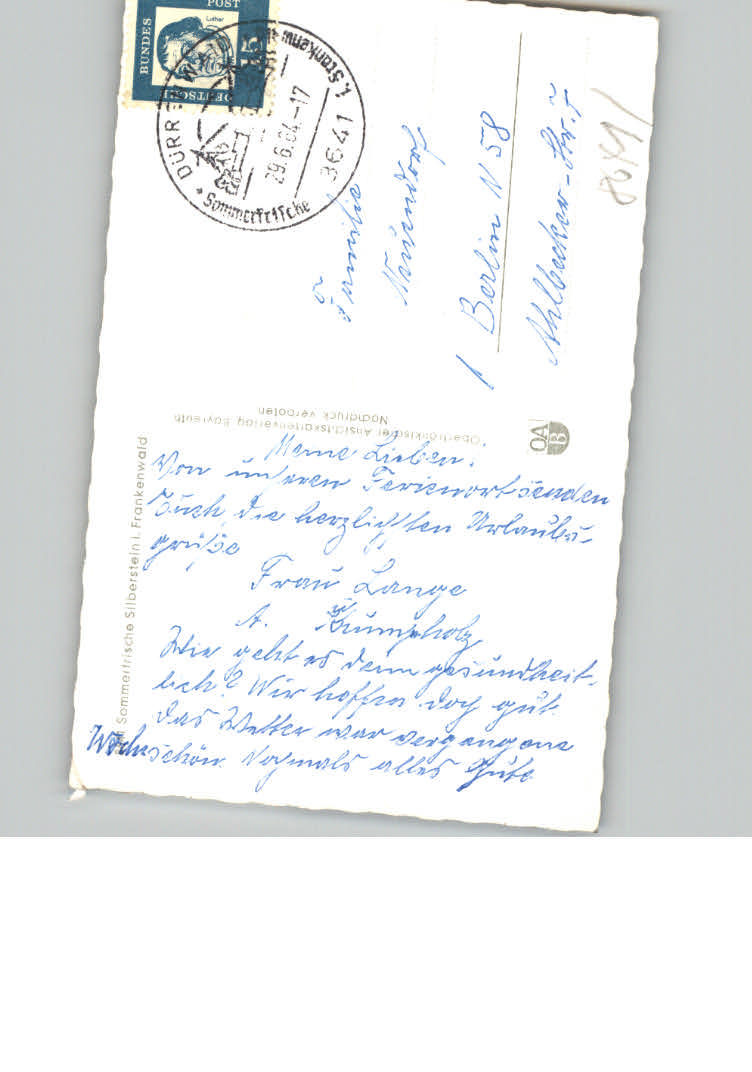 DEUTSCHE
BUNDES
POST
Luther
15
DÜRRENWAID
i. Frankenwald
3641
29.6.64.-17
* Sommerfrische
Familie
Naŭendorf
1 Berlin N 58
Ahlbecker-Str. 7
8641/
Oberfränkischer Ansichtskartenverlag, Bayreuth
Nachdruck verboten
OA
B
Sommerfrische Silberstein i. Frankenwald
Meine Lieben!
Von unseren Ferienort senden
Euch die herzlichsten Urlaubs-
grüße
Fraŭ Lange
A. Krumpholz
Wie geht es denn gesundheit-
lich? Wir hoffen doch gŭt.
Das Wetter war vergangene
Woche schön. Nochmals alles Gute